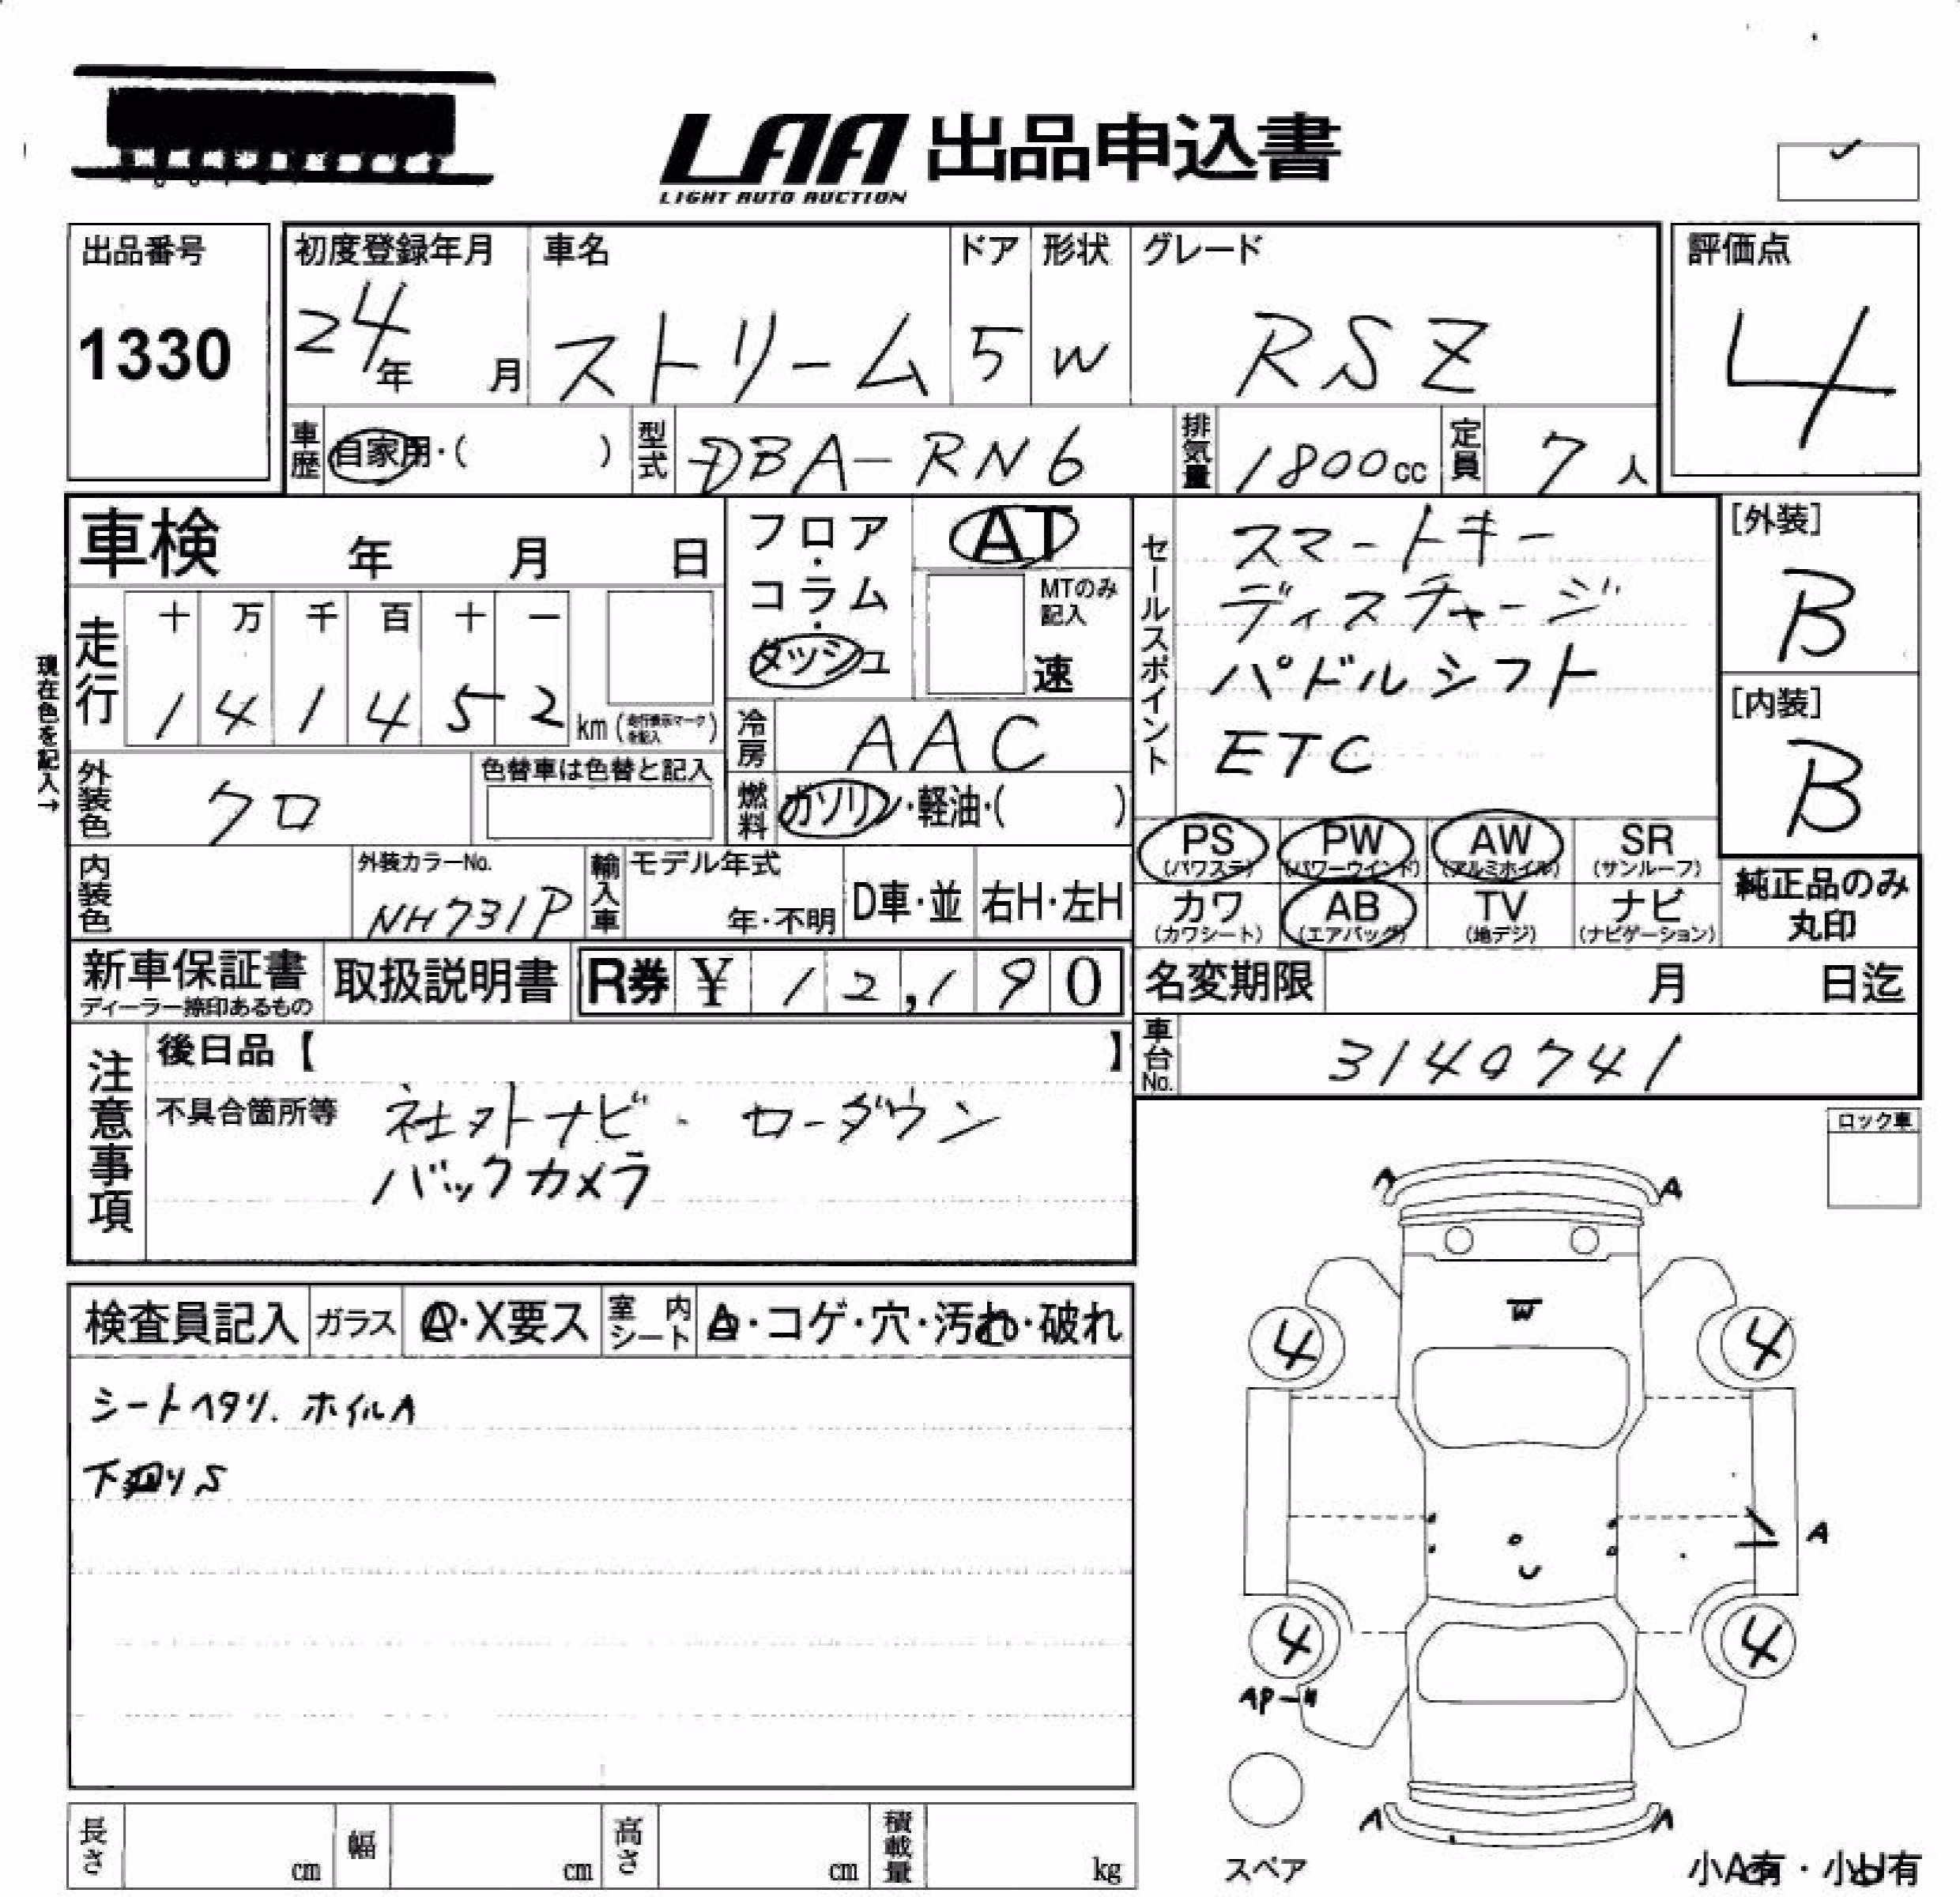 LAA 出品申込書
LIGHT AUTO AUCTION
出品番号
1330
初度登録年月
24年 月
車名
ストリーム
ドア
5
形状
W
グレード
RSZ
評価点
4
車歴
自家用・( )
型式
DBA-RN6
排気量
1800cc
定員
7人
車検 年 月 日
フロア・コラム・ダッシュ
AT
MTのみ記入
速
セールスポイント
スマートキー
ディスチャージ
パドルシフト
ETC
[外装]
B
[内装]
B
現在色を記入→
走行
十 万 千 百 十 一
1 4 1 4 5 2 km (走行表示マークを記入)
冷房
AAC
外装色
クロ
色替車は色替と記入
燃料
ガソリン・軽油・( )
PS (パワステ)
PW (パワーウインド)
AW (アルミホイル)
SR (サンルーフ)
カワ (カワシート)
AB (エアバッグ)
TV (地デジ)
ナビ (ナビゲーション)
純正品のみ丸印
内装色
外装カラーNo.
NH731P
輸入車
モデル年式
年・不明
D車・並
右H・左H
新車保証書
ディーラー捺印あるもの
取扱説明書
R券 ¥ 12,190
名変期限 月 日迄
車台No.
3140741
注意事項
後日品【 】
不具合箇所等
社外ナビ・ローダウン
バックカメラ
ロック車
検査員記入
ガラス
A・X要ス
室内シート
・コゲ・穴・汚れ・破れ
シートヘタリ. ホイルA
下廻りS
A
W
4 4
A
4 4
AP-
A A
スペア
小A有・小U有
長さ cm
幅 cm
高さ cm
積載量 kg